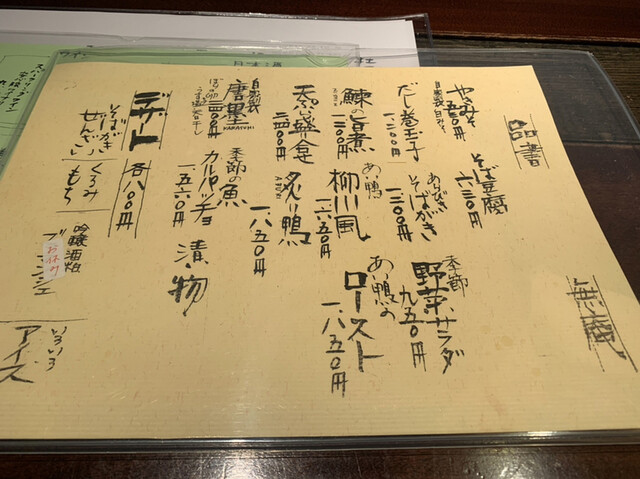 品書
やきみそ 五五〇円
自家製白みそ
そば豆腐
六三〇円
だし巻玉子
一、二〇〇円
あらびき
そばがき
一、二〇〇円
季節
野菜サラダ
九五〇円
鰊の旨煮
一、二〇〇円
あい鴨
柳川風
一、六五〇円
あい鴨の
ロースト
一、八五〇円
天ぷら盛合
二、四〇〇円
炙り鴨
一、八五〇円
自家製
唐墨
KARASUMI
ぼらの卵
二、四〇〇円
季節の魚
カルパッチョ
一、五六〇円
漬物
デザート 各八〇〇円
そばがき
ぜんざい
くるみ
もち
吟醸酒粕
ブランジェ
お休み
いろいろ
アイス